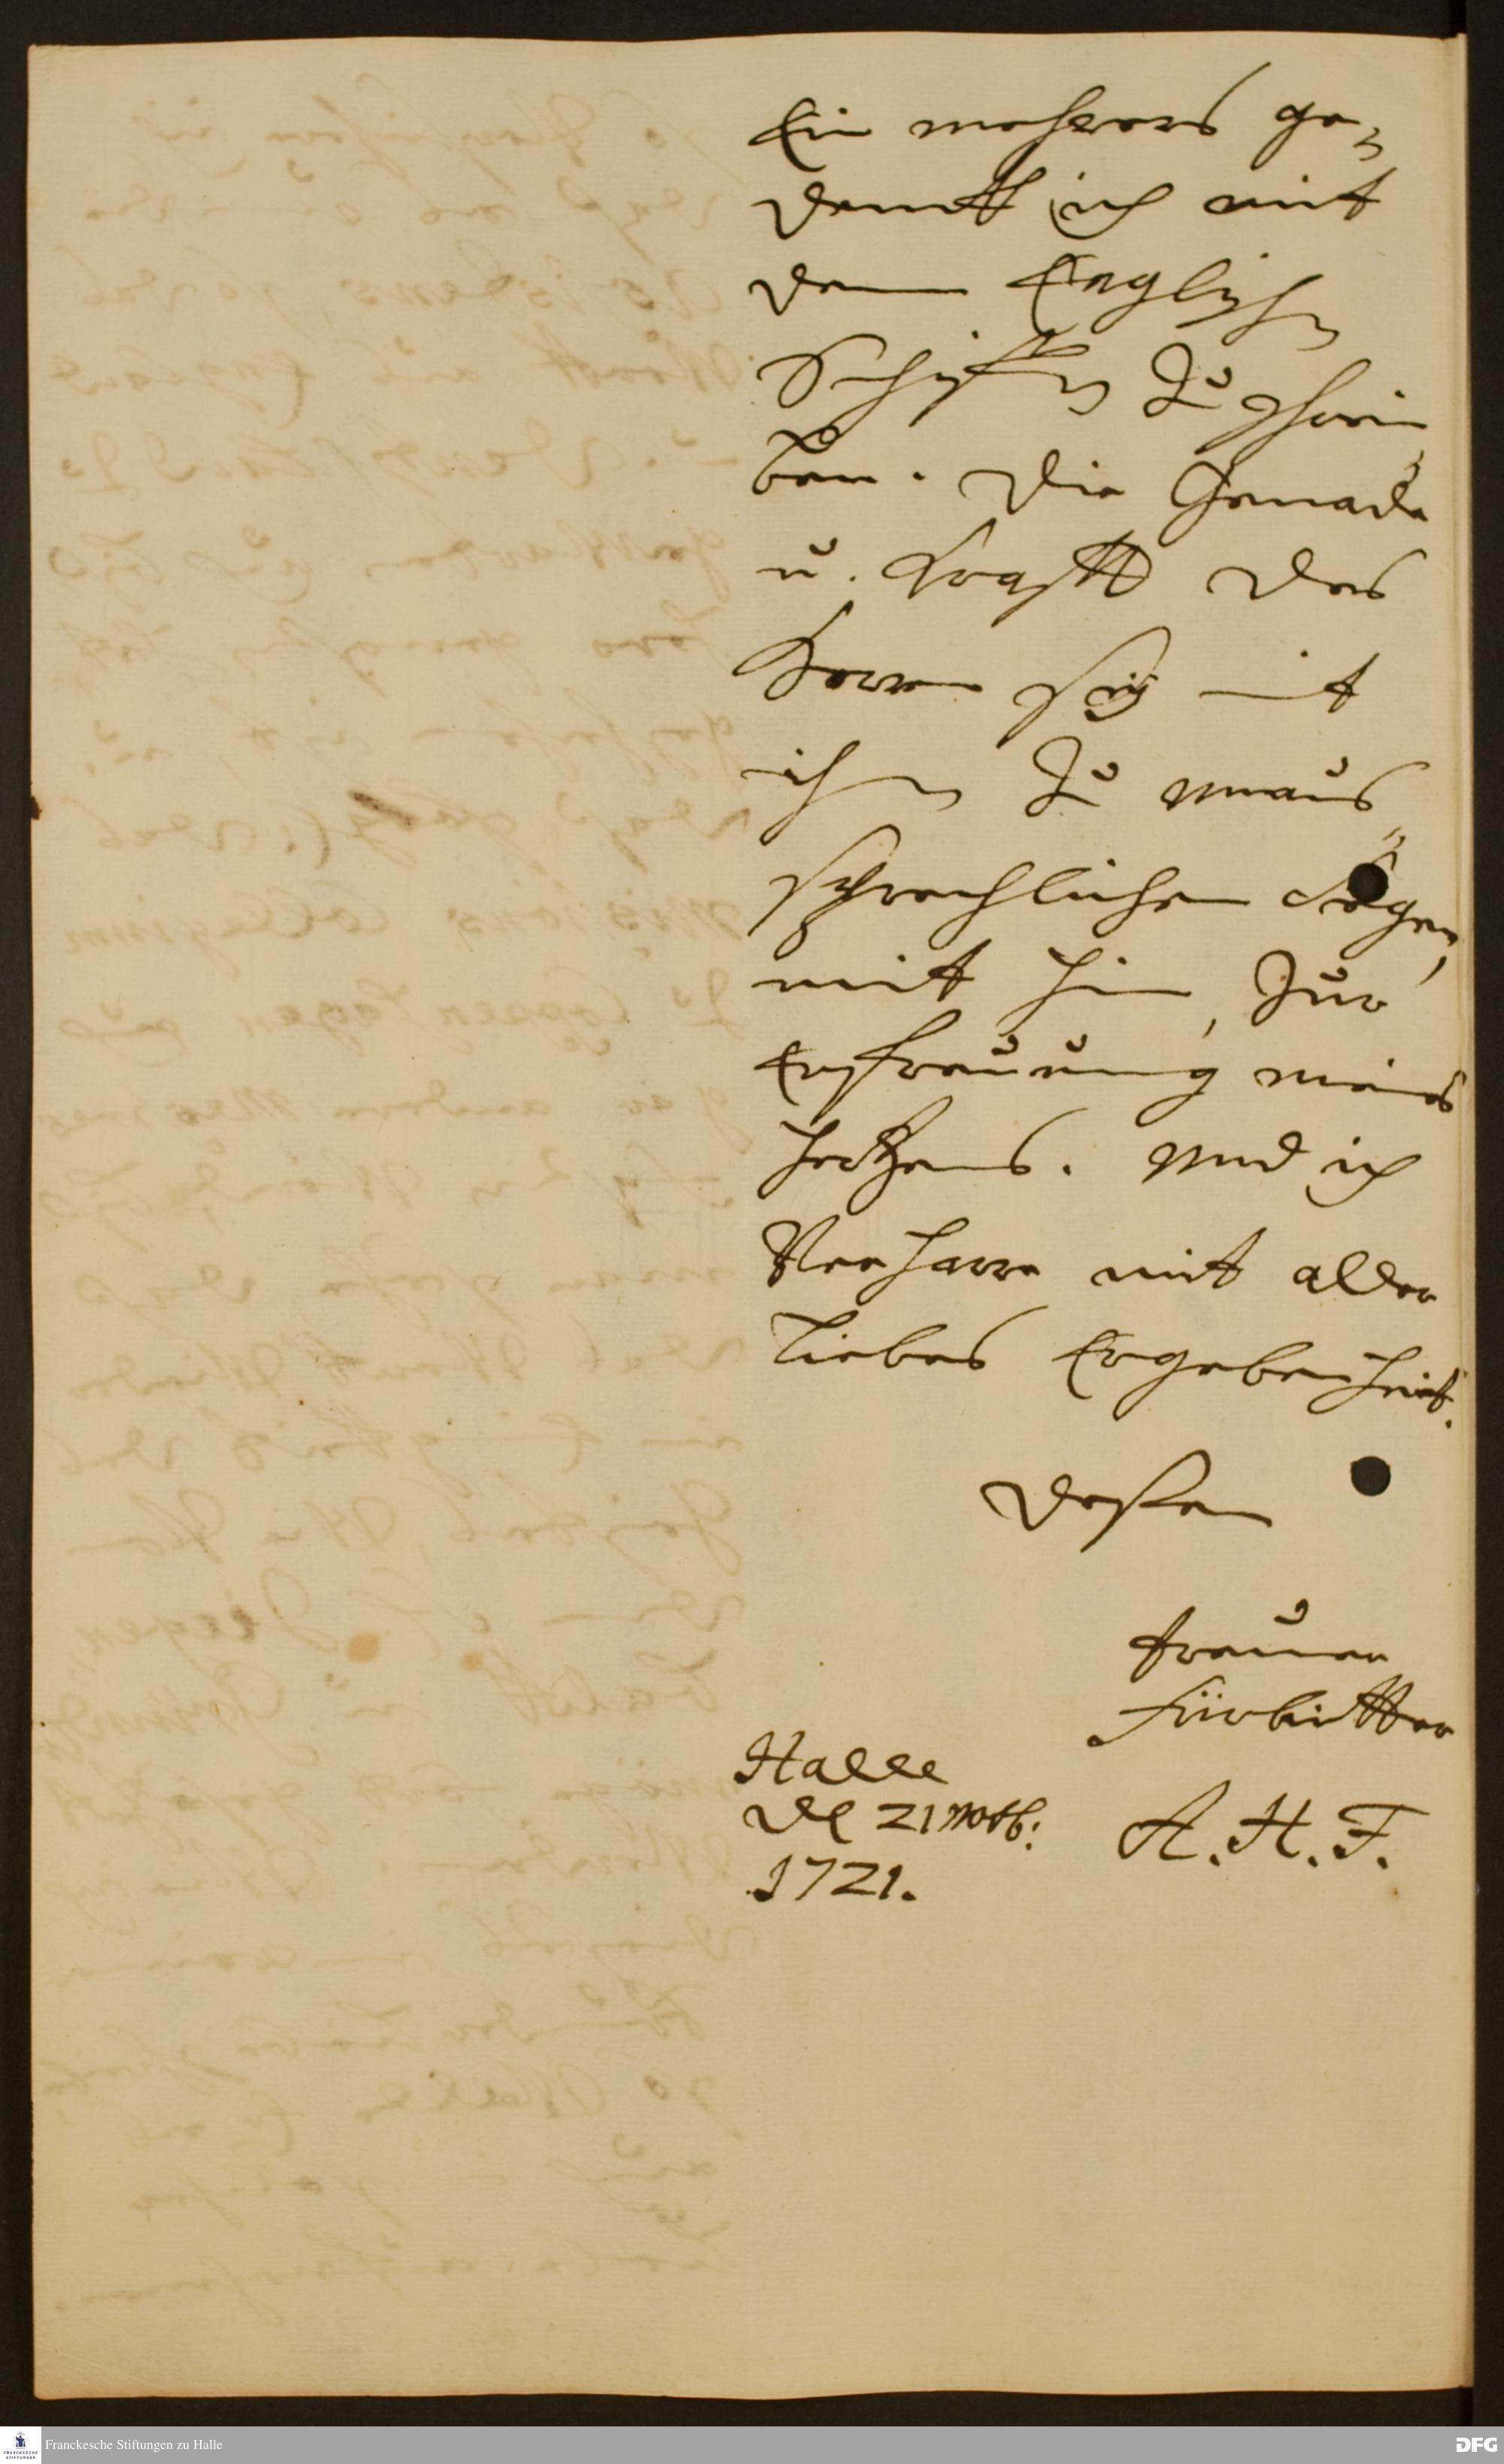 Ein mehrers ge-
denckt ich mit
dem Englischen
Schiffen zu schrei
ben. Die Genade
u. Krafft des
Herrn sey mit
ihnen zu unaus
sprechlichen Segen,
mit hin, zur
Erfreuung meines
Hertzens. Und ich
Verharre mit aller
Liebes Ergebenheit.
Deßen
treuer
Fürbitter
Halle
de 21 Octb:
1721.
A. H. F.
Franckesche Stiftungen zu Halle
DFG